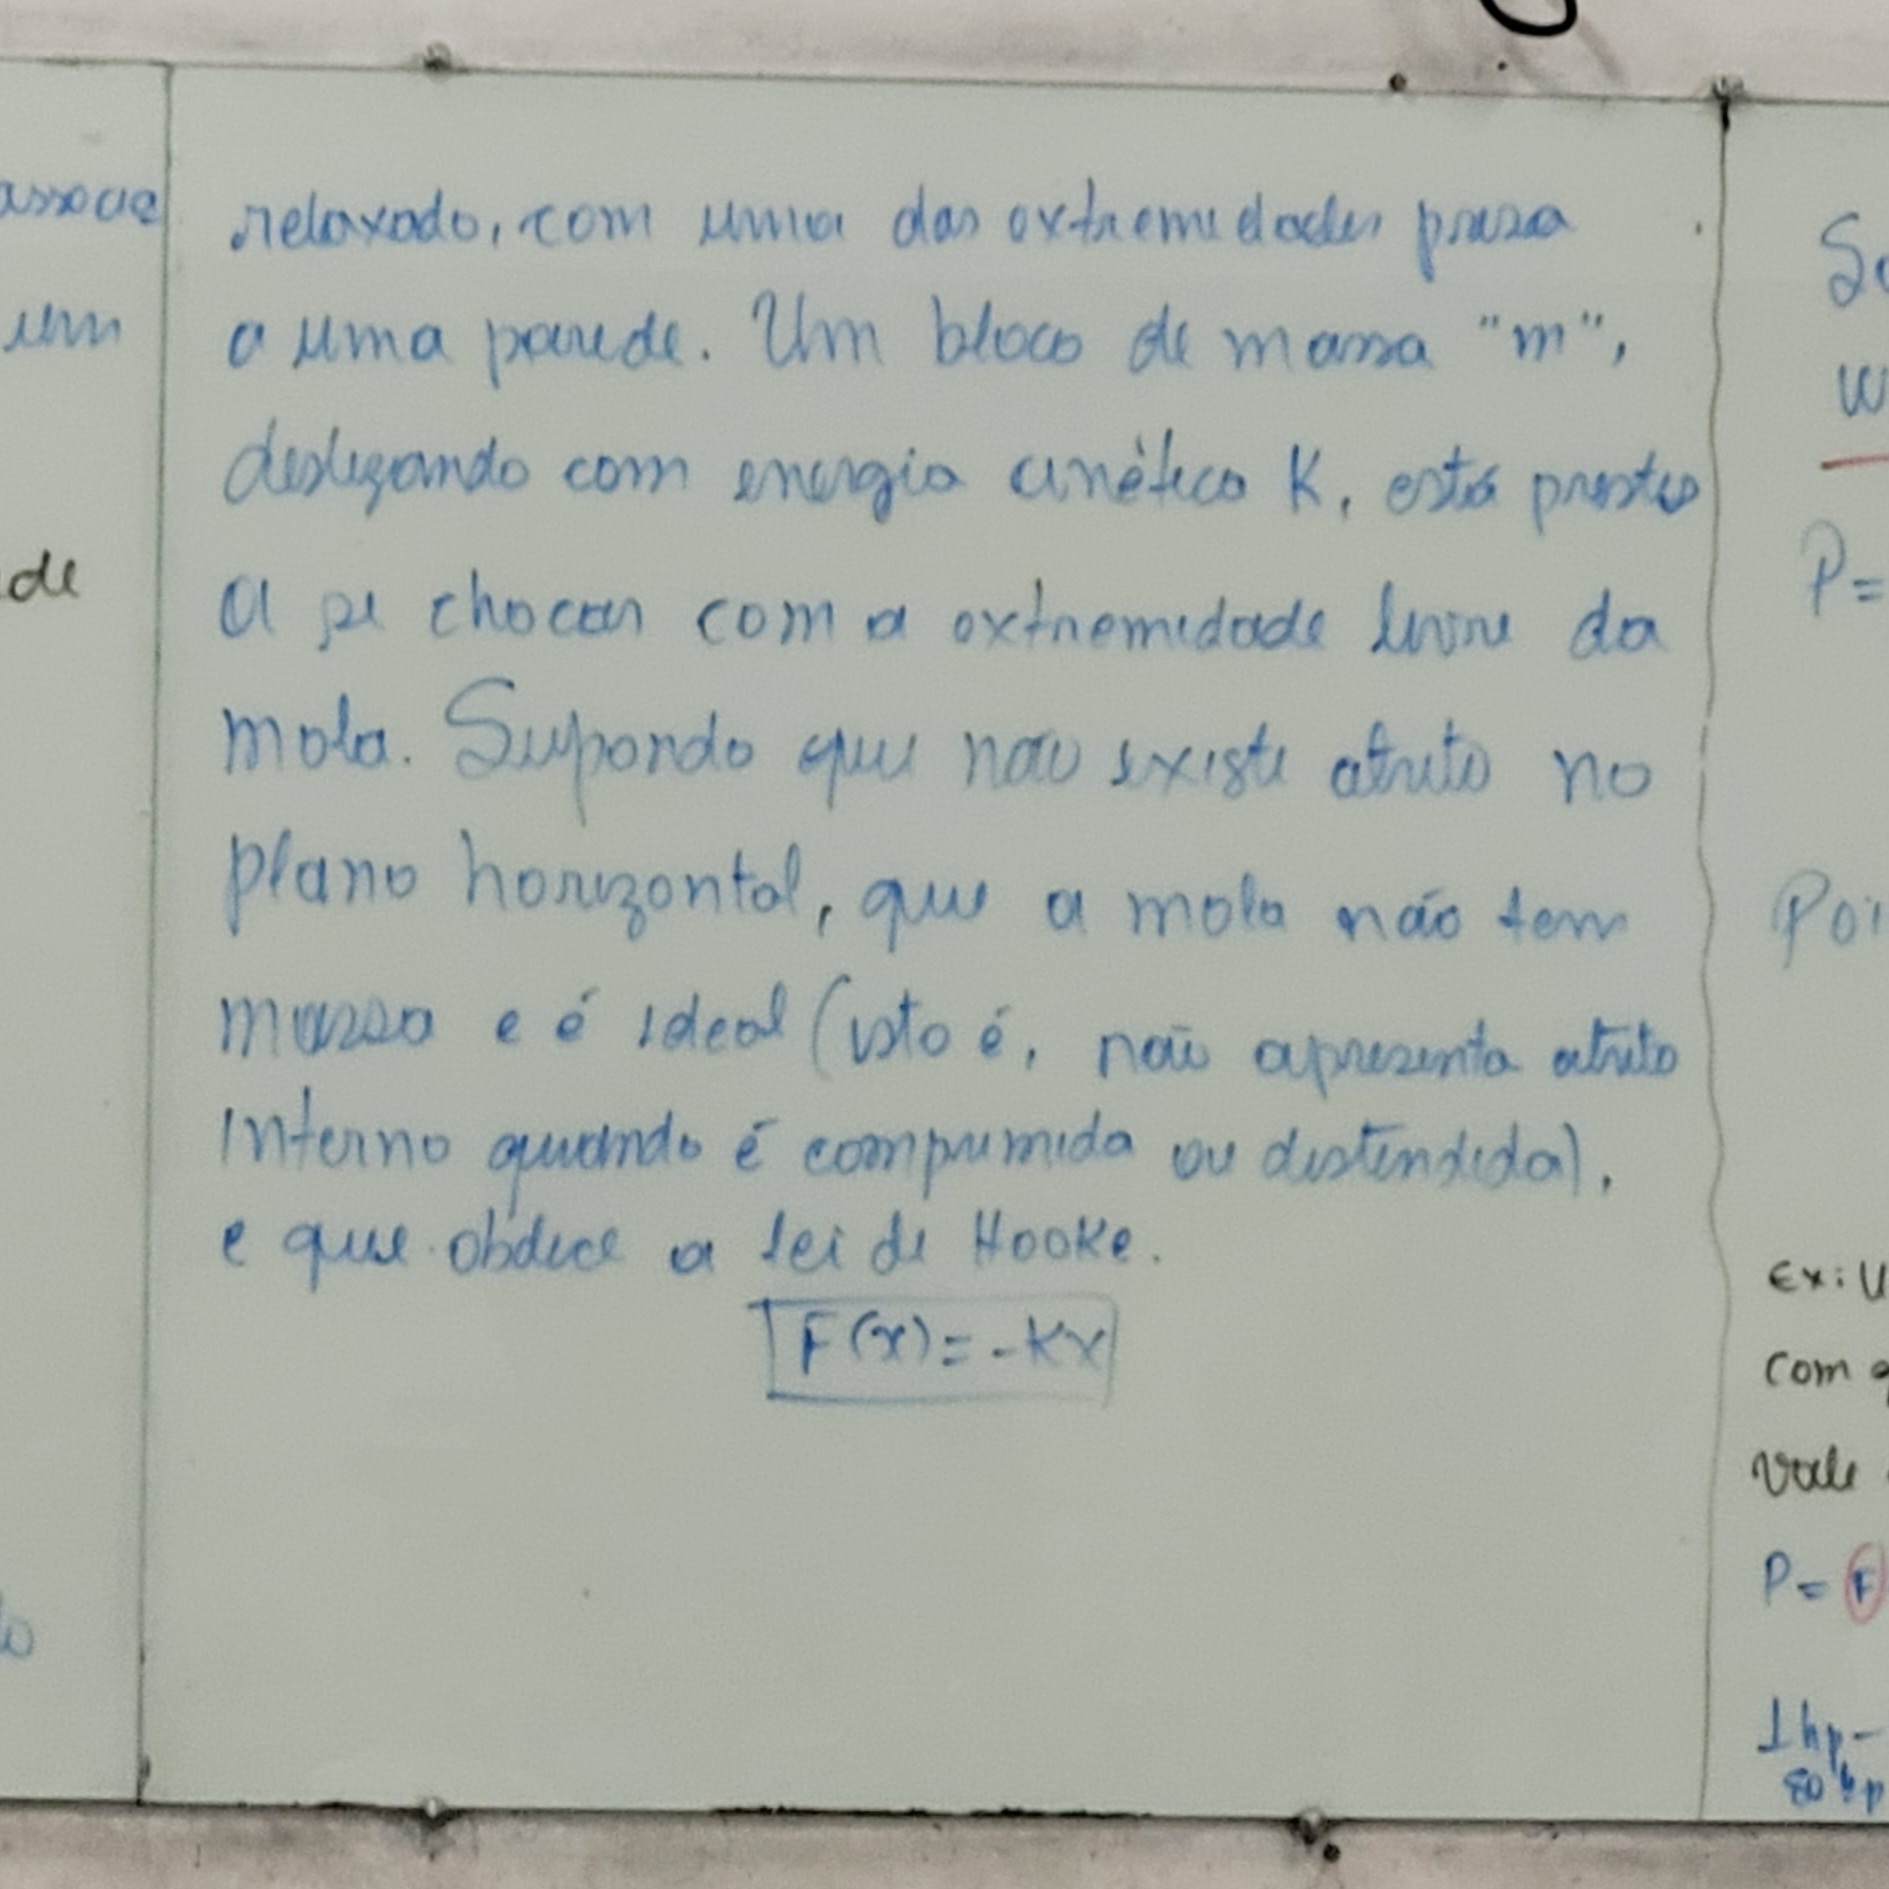 relaxado, com uma das extremidades presa
a uma parede. Um bloco de massa "m",
deslizando com energia cinética K, está prestes
a se chocar com a extremidade livre da
mola. Supondo que não existe atrito no
plano horizontal, que a mola não tem
massa e é ideal (isto é, não apresenta atrito
interno quando é comprimida ou distendida),
e que obdece a lei de Hooke.
F(x) = -Kx
associe
um
de
P=
Ex: U
com
vale
P = F
1hp -